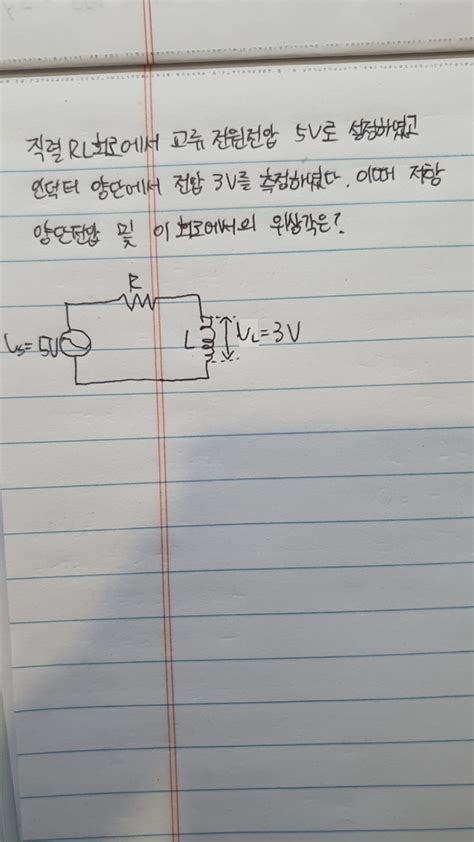 직렬 RL회로에서 교류 전원전압 5V로 설정하였고
인덕터 양단에서 전압 3V를 측정하였다. 이때 저항
양단전압 및 이 회로에서의 위상각은?
R
Vs=5V
L
VL=3V